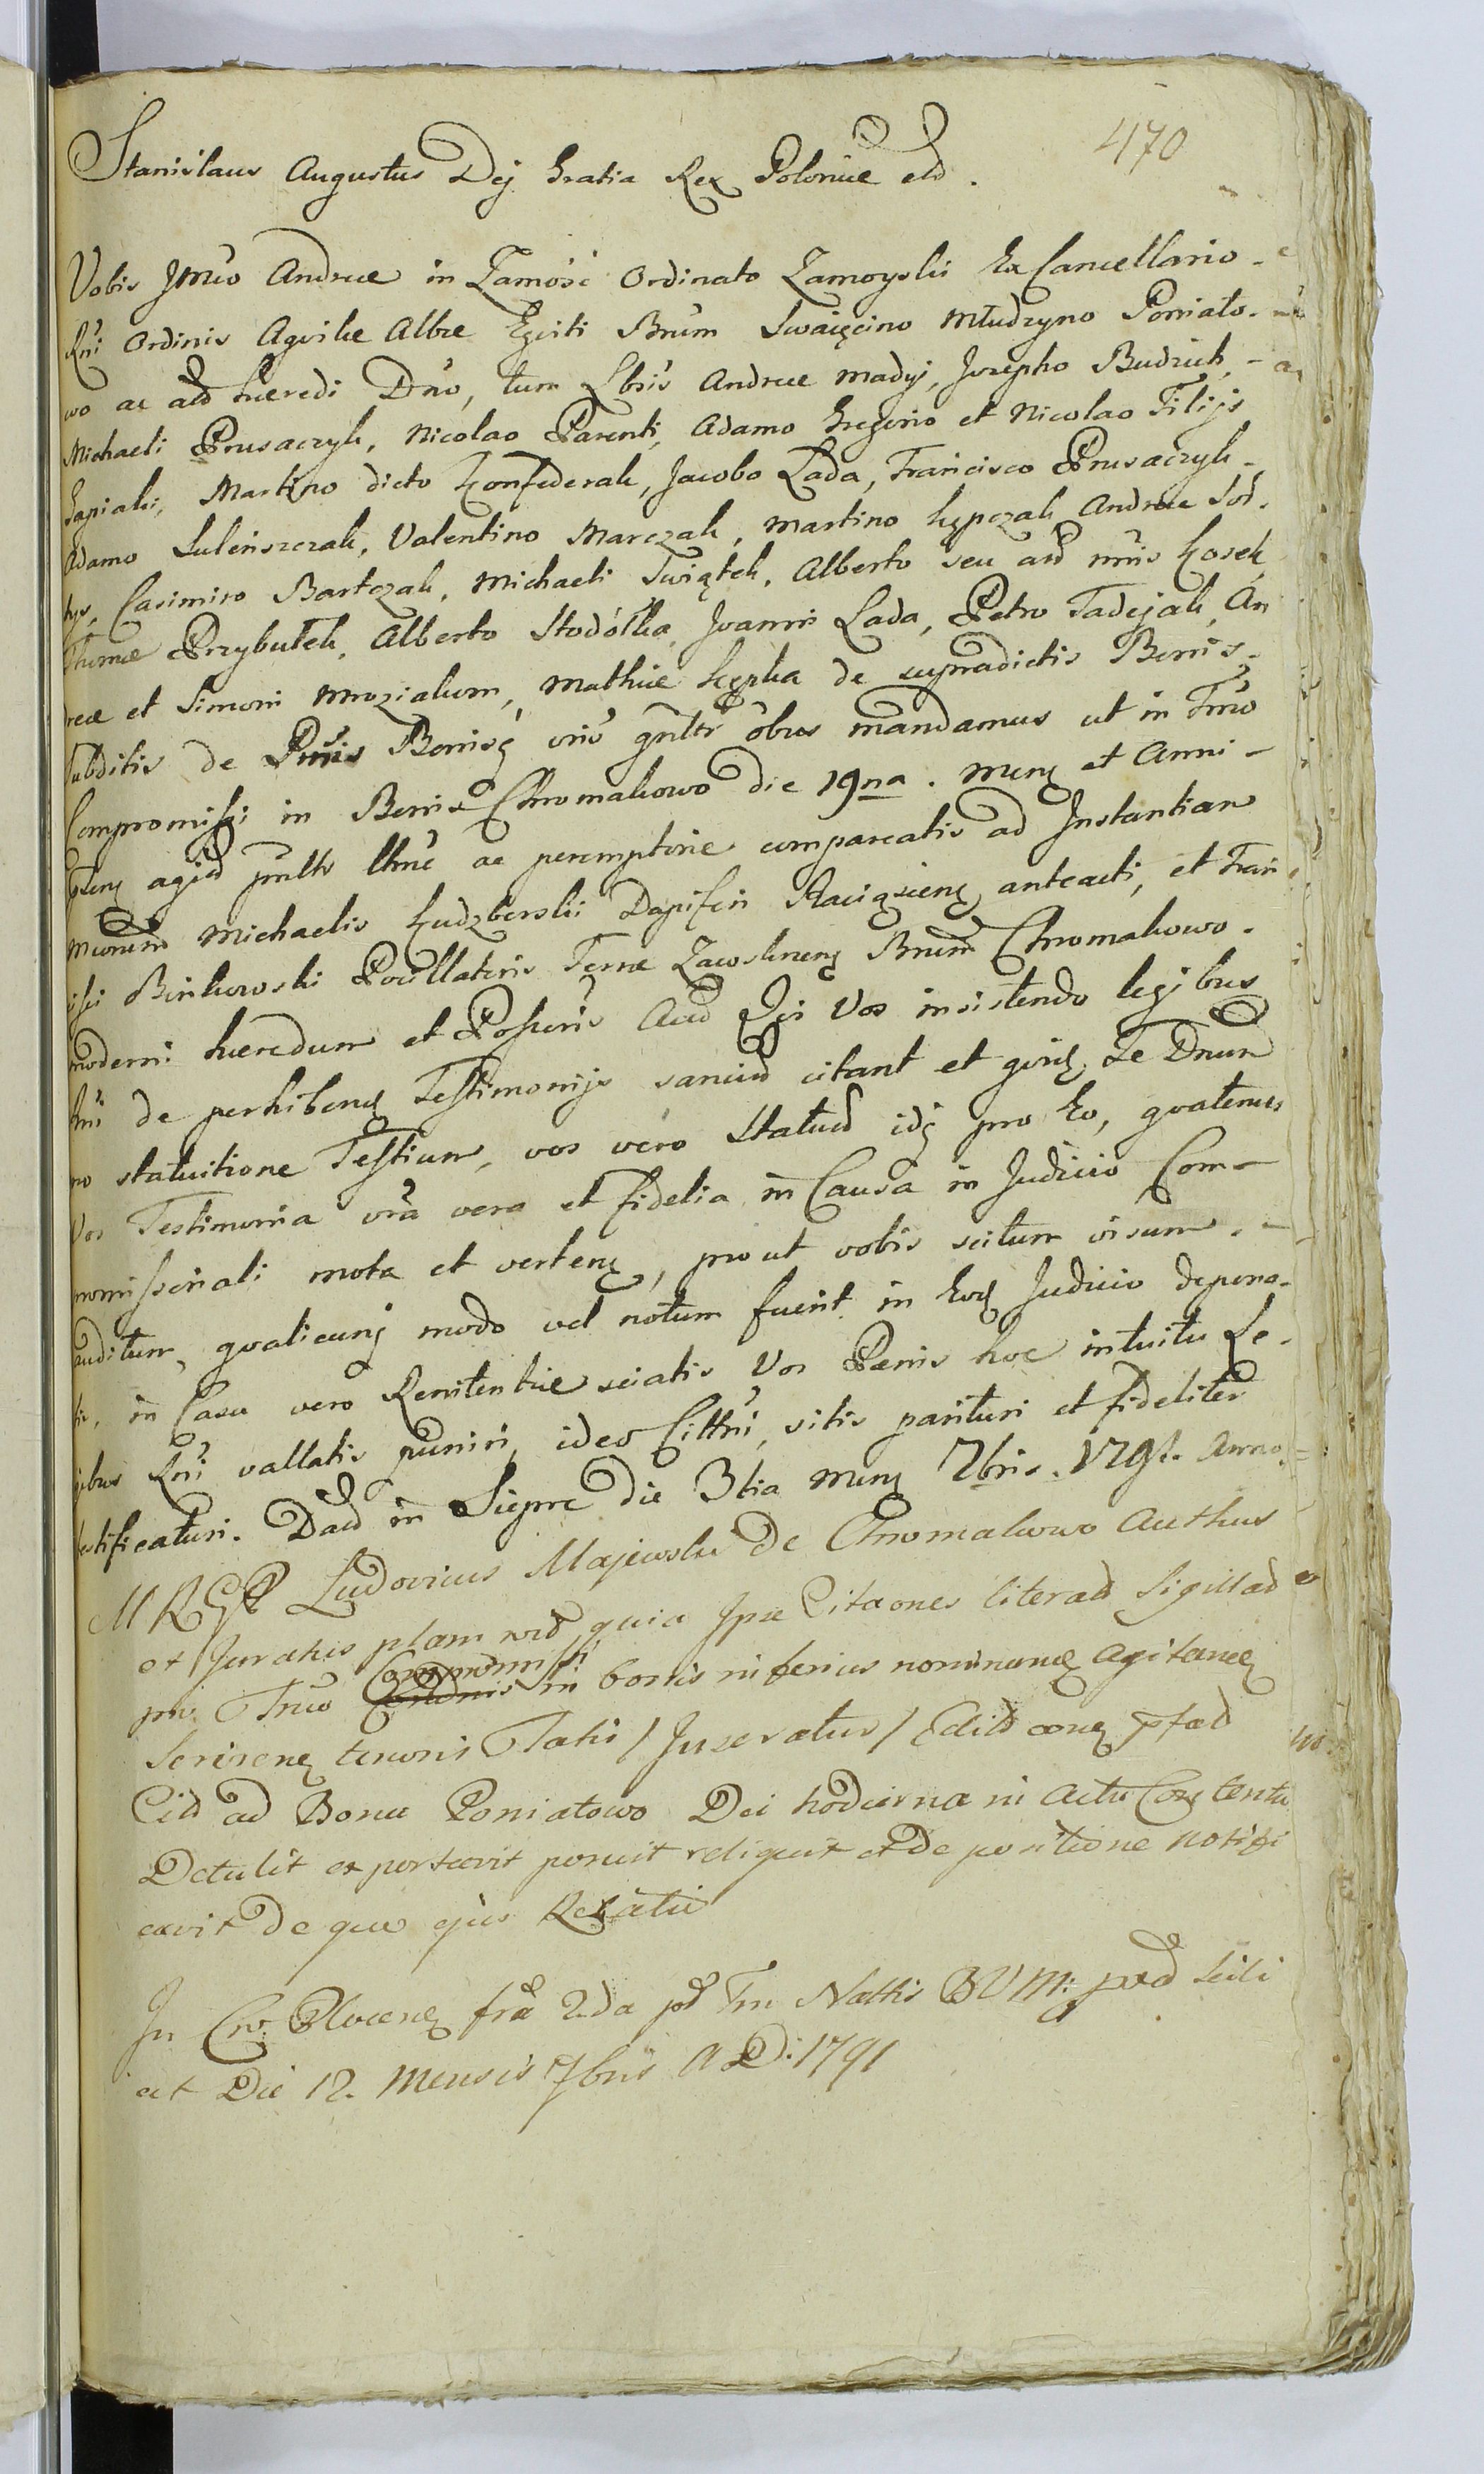 470
Stanislaus Augustus Dej Gratia Rex Poloniæ etc.
Vobis Jmco Andreæ in Zamość Ordinato Zamoyski Ex Cancellario
Rni Ordinis Aqvilæ Albæ Eqviti Bnum Swaięcino Młudzyno Poniato-
wo ac alid hæredi Dno, tum Lbris Andreæ Madyj, Josepho Budzich,
Michaeli Prusaczyk, Nicolao Parenti, Adamo Gregorio et Nicolao Filijs
Gapiaki, Martino dicto Konfederak, Jacobo Łada, Francisco Prusaczyk
Adamo Suleńszczak, Valentino Marczak, Martino Kępczak Andreæ Sol-
kys, Casimiro Bartczak, Michaeli Swiątek, Alberto seu alio nmis Kosek,
Thomæ Przybułek, Alberto Stodółka, Joanni Łada, Petro Tadejak, An
dreæ et Simoni Mrozialum, Mathiæ Kępka de supradictis Bonis
Subditis de Pnis Bonisq vris gnltr obus mandamus ut in Tmo
Compromissi in Bonis Chromakowo die 19na. Menq et Anni
pntnq agid pnltr ltmé ac peremptorie compareatis ad Instantiam
Mcorum Michaelis Kudzberski Dapiferi Raciązienq anteacti, et Fran
isci Binkowski Pocillatoris Terræ Zawskrnenq Bnum Chromakowo
moderni hæredum et Possoris Acto Qui Vos insistendo legibus
Rni de perhibenq Testimonijs sancitd citant et qvidq Te Dnum
pro statuitione Testium, vos vero Statuid idq pro Eo, qvatenus
Vos Testimonia vra vera et fidelia in Causa in Judicio Com-
promissoriali mota et vertenq, prout vobis scitum visum
auditum, qvalicunq modo vel notum fuerit in Eodq Judicio depona-
tis, in Casu vero Renitentiæ sciatis Vos Pænis hoc intuitu Le-
gibus Rni vallatis puniri, ideo Cittni, sitis parituri et fideliter
testificaturi. Datd in Sieprc die 3tia Menq 7bris. 1791. Anno
M R G P Ludovicus Majewski De Chromakowo Authus
et Juratus plam red quia Ipse Citaones literald Sigillad
pro Tmo Compromissi in bonis inferius nominanq agitanq
Seriesnq tenoris Talis / Inseratur / Edild aonq pfad
Cid ad Bona Poniatowo Die hodierna in Actu Conq tenta
Detulit et portavit posuit reliquit et De positione notifi
cavit De quo ejus Relatio
In Cro Plocenq fra 2da pd Fm Nattis BVM: prd scili
cet Die 12. Mensis 7bris A D: 1791